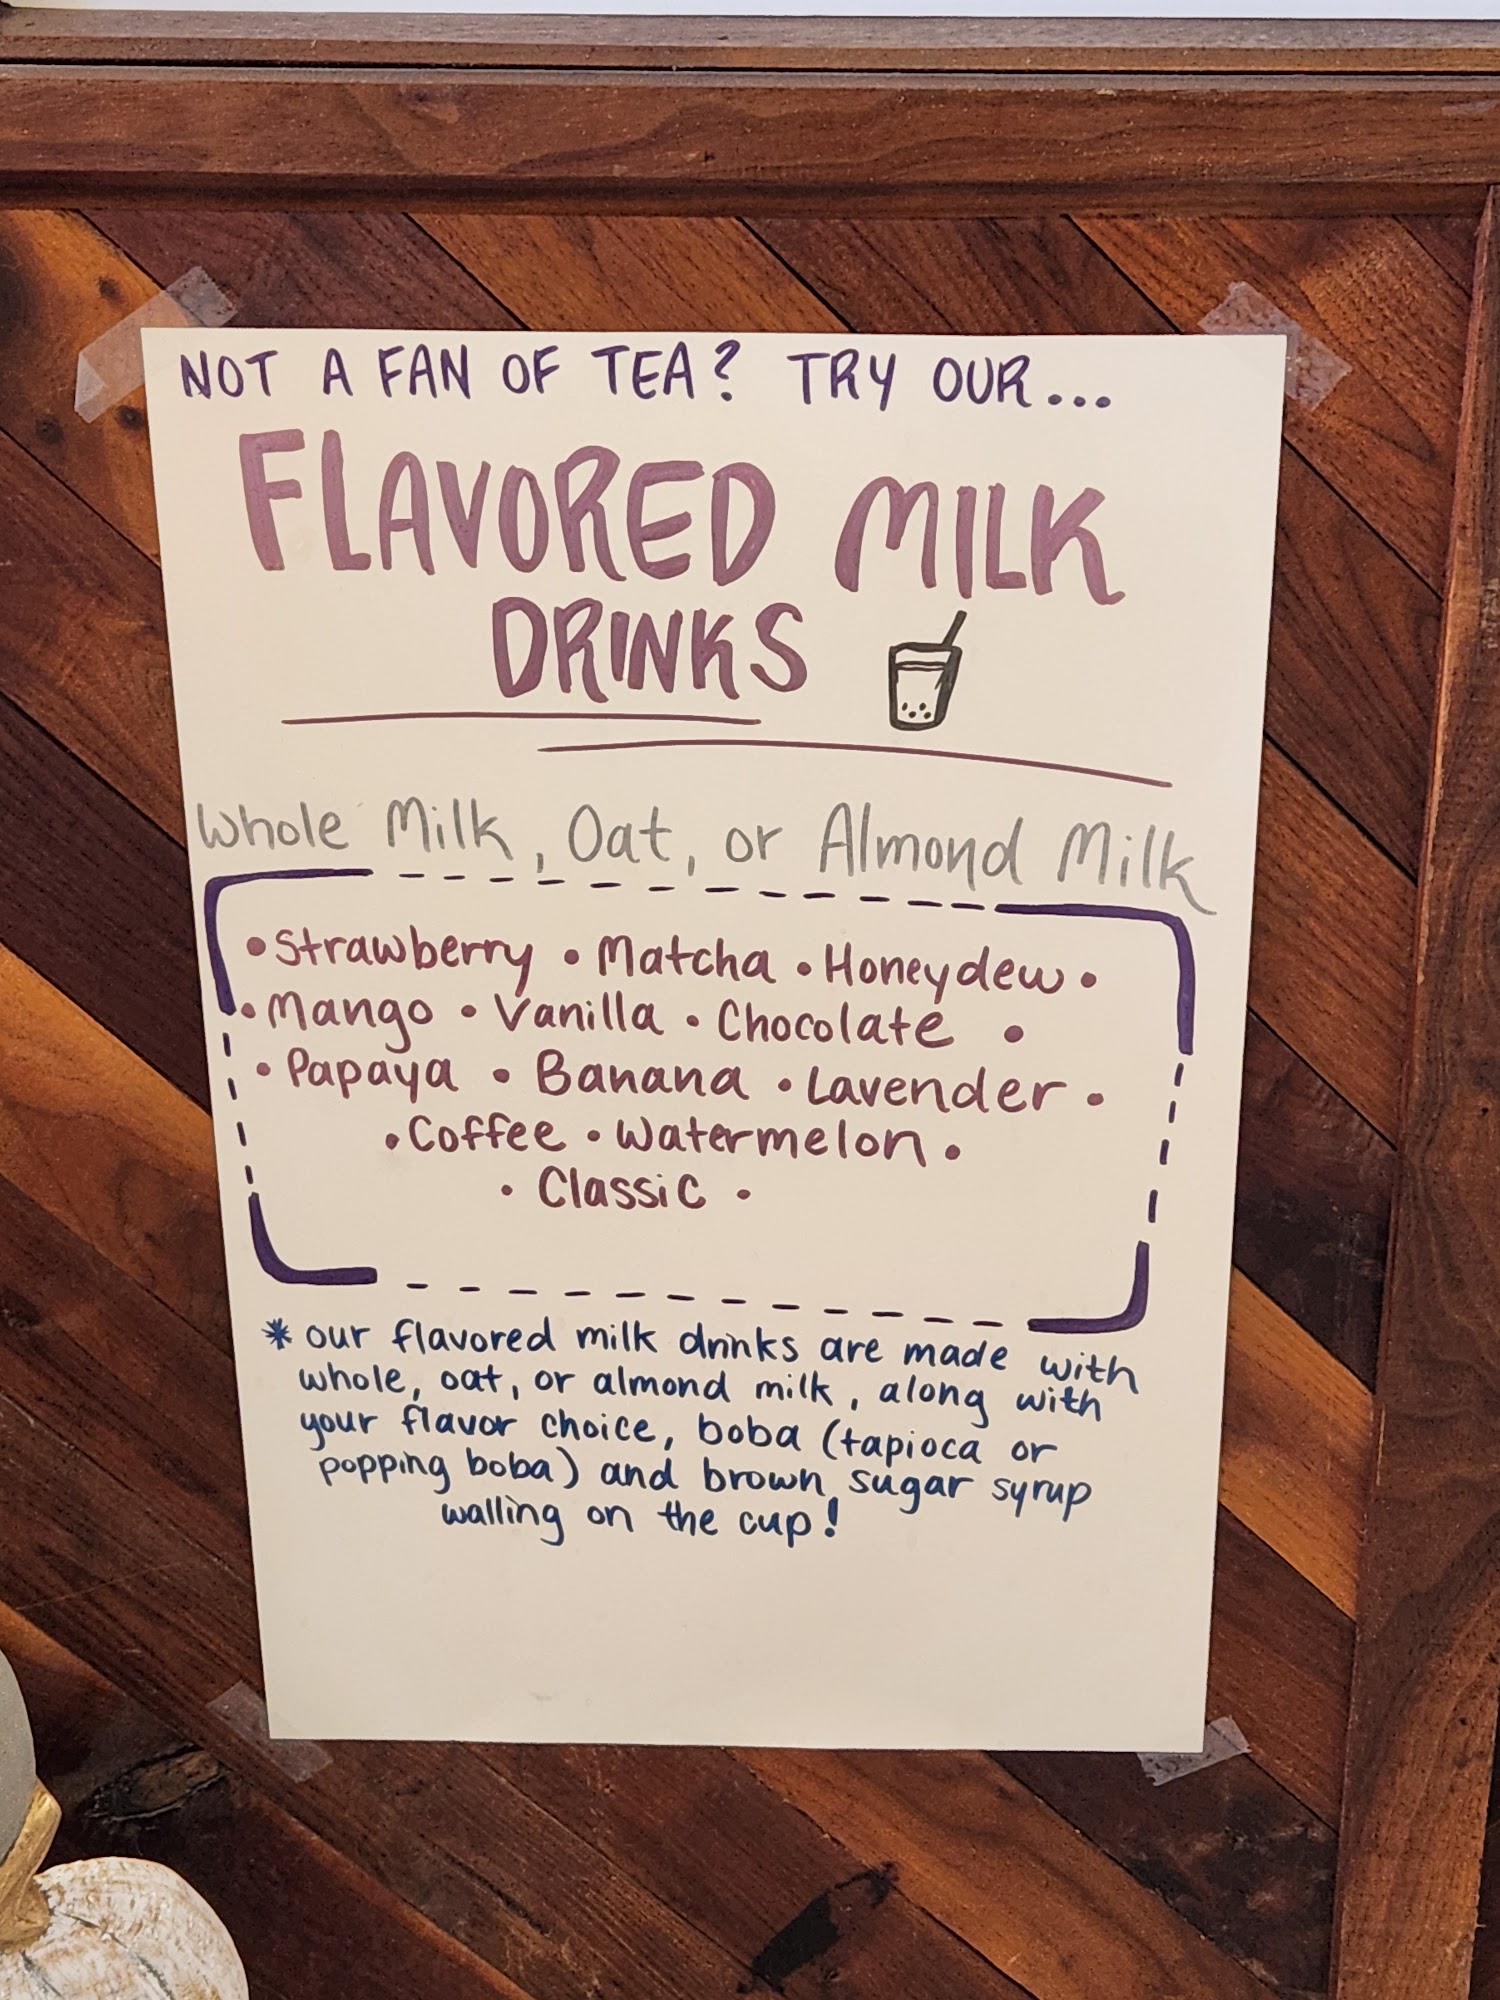 NOT A FAN OF TEA? TRY OUR...
FLAVORED MILK
DRINKS
Whole Milk, Oat, or Almond Milk
• Strawberry • Matcha • Honeydew •
• Mango • Vanilla • Chocolate •
• Papaya • Banana • Lavender •
• Coffee • Watermelon •
• Classic •
* our flavored milk drinks are made with
whole, oat, or almond milk, along with
your flavor choice, boba (tapioca or
popping boba) and brown sugar syrup
walling on the cup!